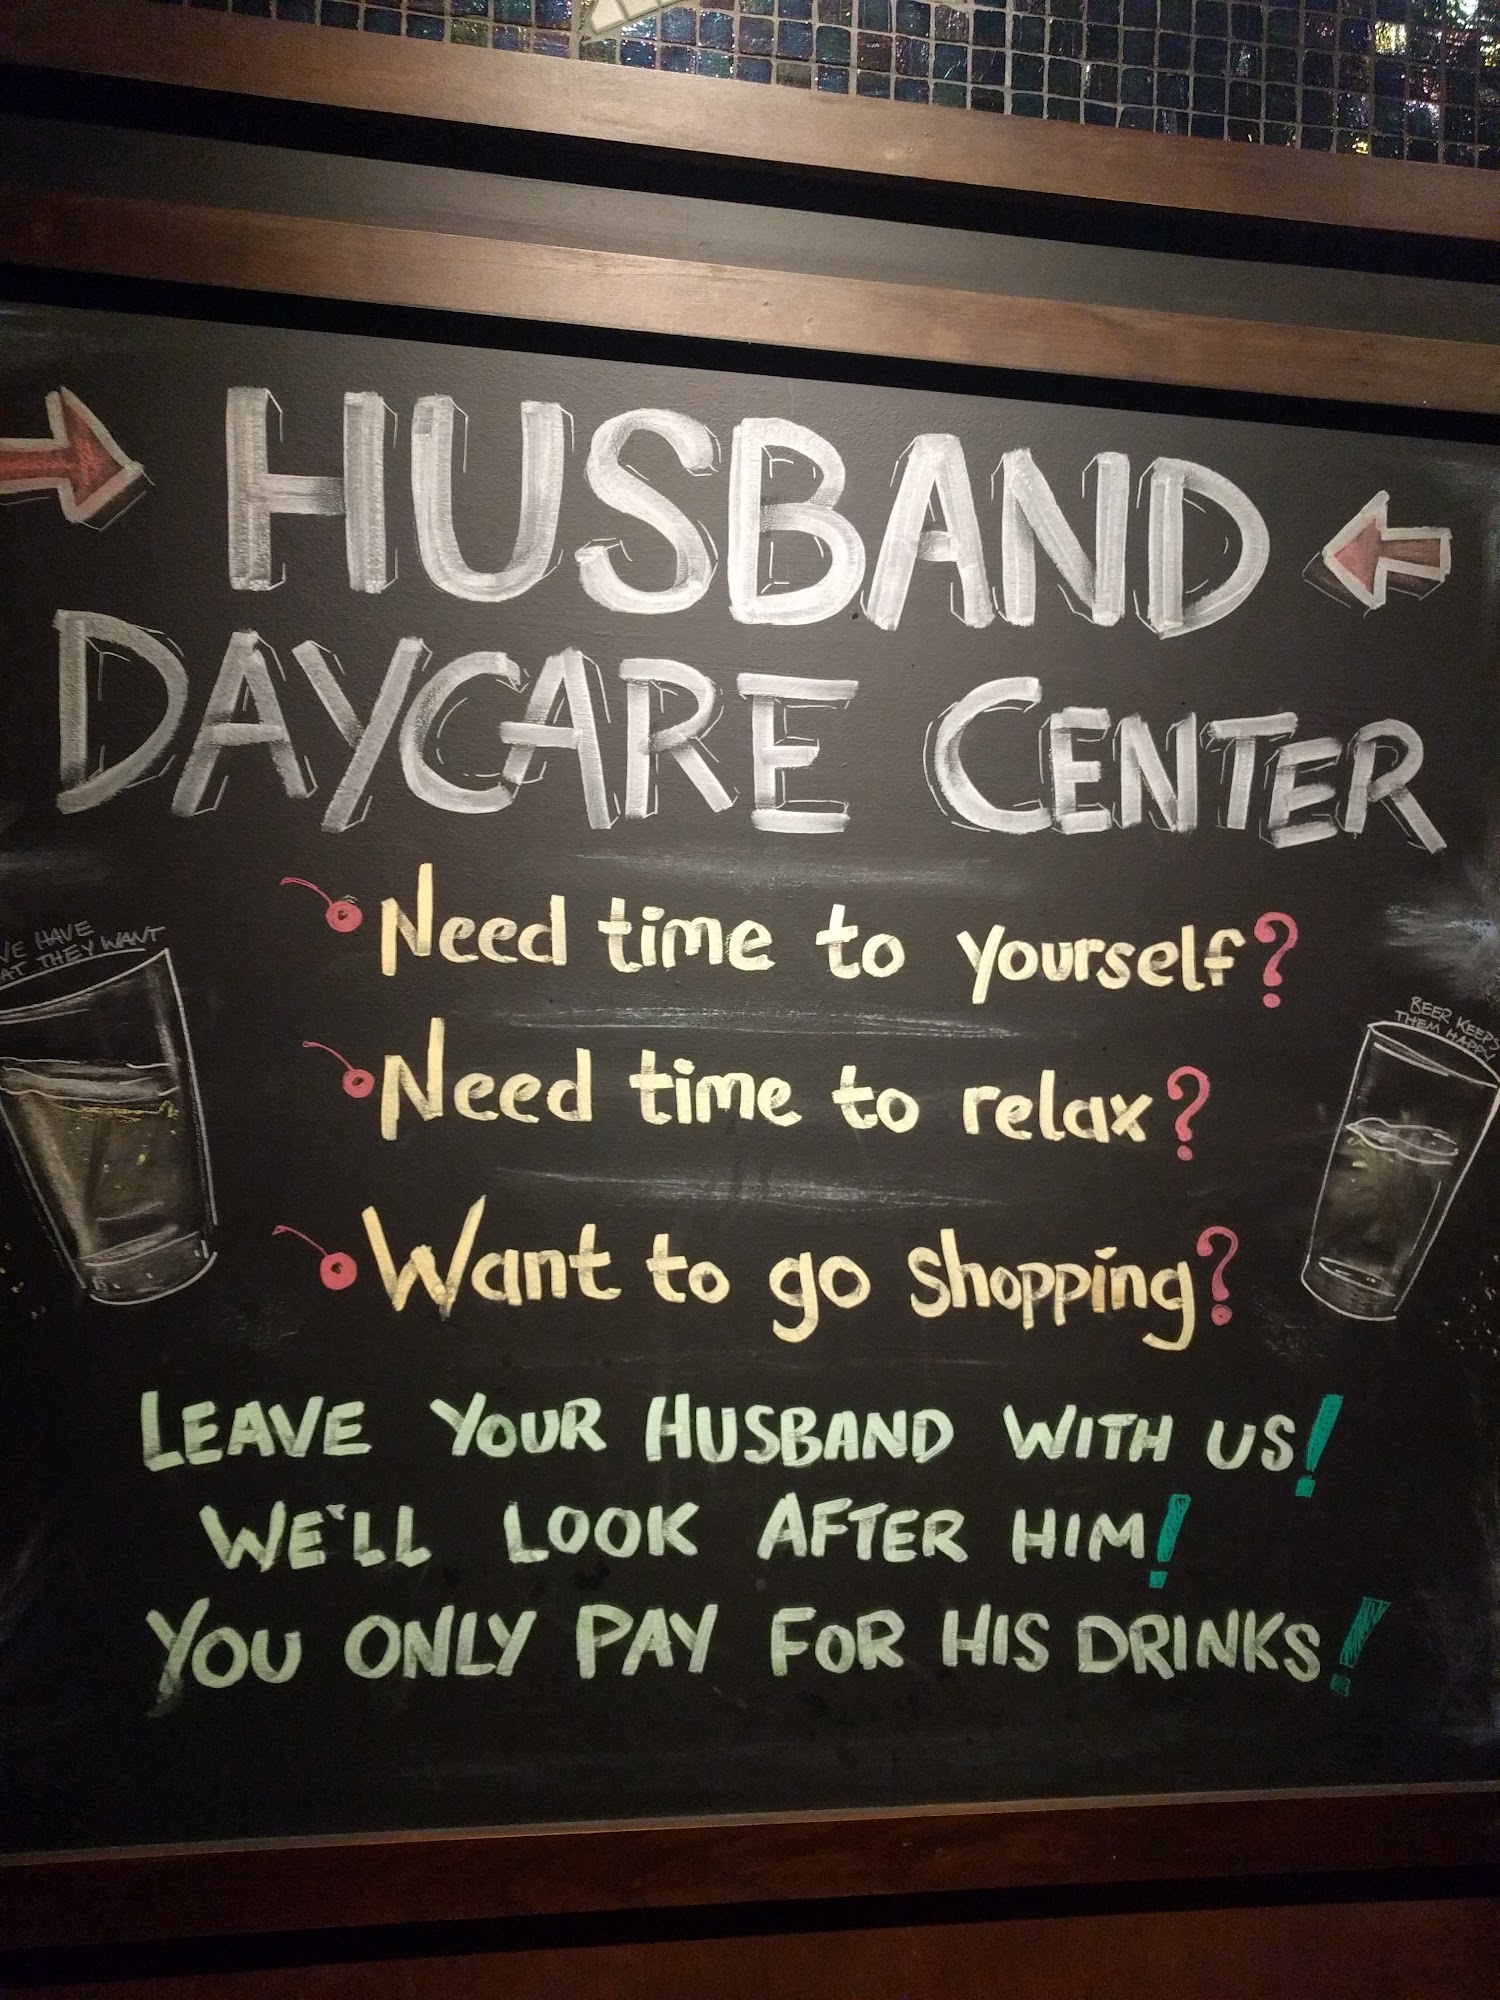 HUSBAND
DAYCARE CENTER
Need time to yourself?
HAVE
THEY WANT
BEER KEEPS
THEM HAPPY
Need time to relax?
Want to go shopping?
LEAVE YOUR HUSBAND WITH US!
WE'LL LOOK AFTER HIM!
YOU ONLY PAY FOR HIS DRINKS!